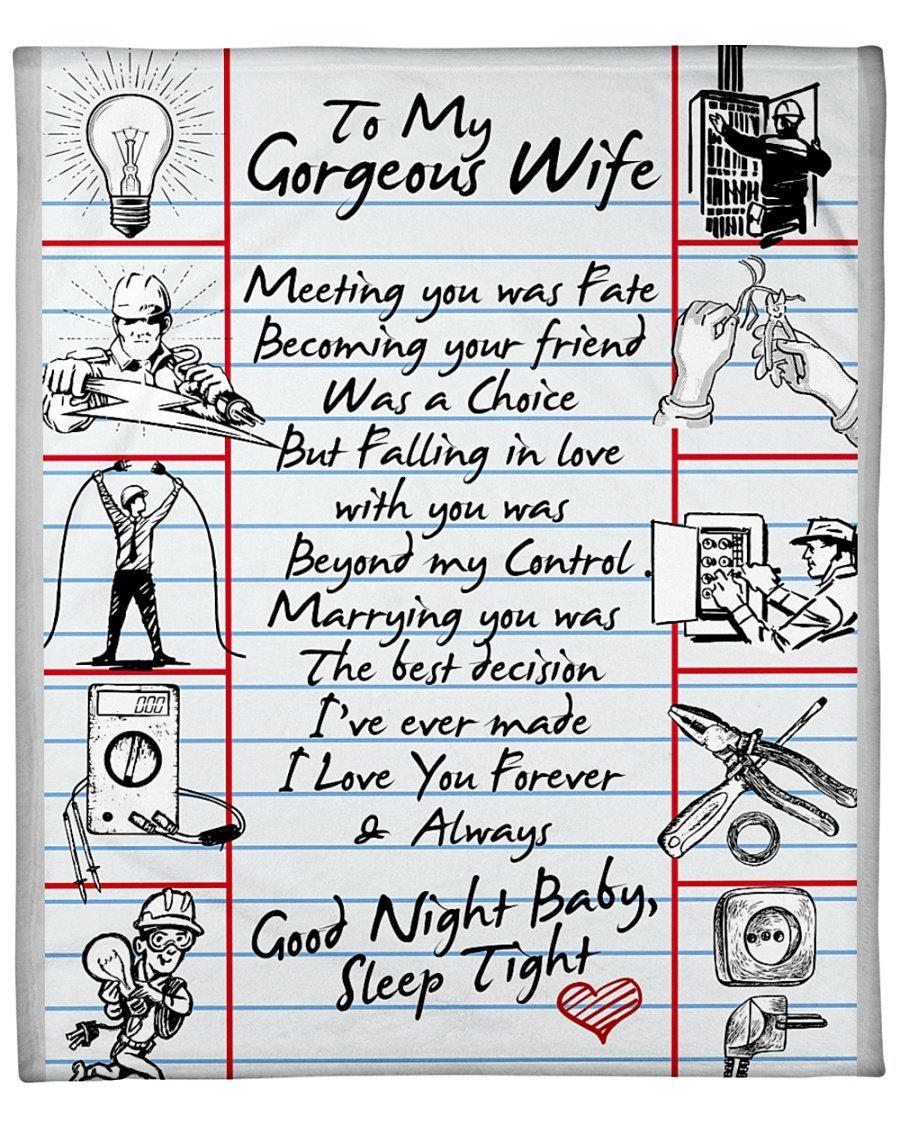 To My
Gorgeous Wife
Meeting you was Fate
Becoming your friend
Was a Choice
But Falling in love
with you was
Beyond my Control.
Marrying you was
The best decision
I've ever made
I Love You Forever
& Always
Good Night Baby,
Sleep Tight
000